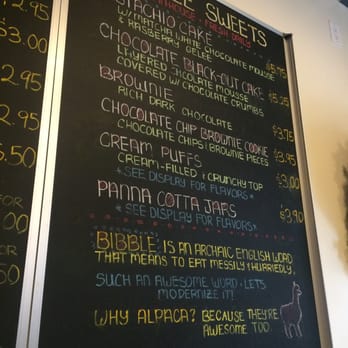 SWEETS
PISTACHIO CAKE
W/ MATCHA WHITE CHOCOLATE MOUSSE
& RASPBERRY GELEE
$5.75
CHOCOLATE BLACK-OUT CAKE
LAYERED CHOCOLATE MOUSSE
COVERED W/ CHOCOLATE CRUMBS
$5.25
BROWNIE
RICH DARK CHOCOLATE
$3.75
CHOCOLATE CHIP BROWNIE COOKIE
CHOCOLATE CHIPS & BROWNIE PIECES
$3.95
CREAM PUFFS
CREAM-FILLED & CRUNCHY TOP
*SEE DISPLAY FOR FLAVORS*
$3.00
PANNA COTTA JARS
*SEE DISPLAY FOR FLAVORS*
$3.90
"BIBBLE" IS AN ARCHAIC ENGLISH WORD
THAT MEANS TO EAT MESSILY & HURRIEDLY.
SUCH AN AWESOME WORD - LET'S
MODERNIZE IT!
WHY ALPACA? BECAUSE THEY'RE
AWESOME TOO.
$3.00
2.95
2.95